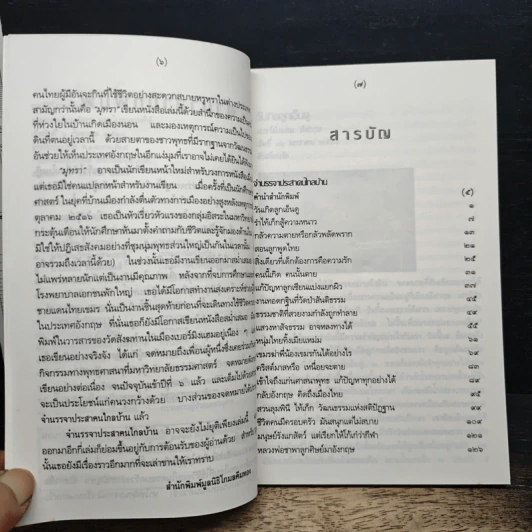 (๖)
คนไทยผู้มีอันจะกินที่ใช้ชีวิตอย่างสะดวกสบายหรูหราในต่างประเทศ
สามัญกว่านั้นคือ "มุทรา" เขียนหนังสือเล่มนี้ด้วยสำนึกของความเป็น
ที่ห่วงใยในบ้านเกิดเมืองนอน และมองเหตุการณ์ความเป็นไปของ
ดินที่ตนอยู่เวลานี้ ด้วยสายตาของชาวพุทธที่มีรากฐานจากวัฒนธรรม
อันช่วยให้เห็นประเทศอังกฤษในอีกแง่มุมที่เราอาจไม่เคยได้ยินได้ฟัง
"มุทรา" อาจเป็นนักเขียนหน้าใหม่สำหรับวงการหนังสือเมือง
แต่เธอมิใช่คนแปลกหน้าสำหรับงานเขียน เมื่อครั้งที่เป็นนักศึกษา
ศาสตร์ ในยุคที่บ้านเมืองกำลังตื่นตัวทางการเมืองอย่างสูงหลังเหตุการณ์
ตุลาคม ๒๕๑๖ เธอเป็นหัวเรี่ยวหัวแรงของกลุ่มอิสระในมหาวิทยาลัย
กระตุ้นเตือนให้นักศึกษาหันมาตั้งคำถามกับชีวิตและรู้จักมองด้านใน
มิใช่ให้ปฏิเสธสังคมอย่างที่ชุมนุมพุทธส่วนใหญ่เป็นกันในเวลานั้น
อาจรวมถึงเวลานี้ด้วย) ในช่วงนั้นเธอมีงานเขียนออกมาสม่ำเสมอ
ไม่แพร่หลายนักแต่เป็นงานมีคุณภาพ หลังจากที่จบการศึกษา
โรงพยาบาลเอกชนพักใหญ่ เธอได้มีโอกาสทำงานสงเคราะห์ช่วย
ชายแดนไทยเขมร นั่นเป็นงานชิ้นสุดท้ายก่อนที่จะเดินทางไปใช้ชีวิต
ในประเทศอังกฤษ ที่นั่นเธอก็ยังมีโอกาสเขียนหนังสือสม่ำเสมอ
พิมพ์ในวารสารของวัดสังฆทานในเมืองเบอร์มิงแฮมอยู่เนือง ๆ
เธอเขียนอย่างจริงจัง ได้แก่ จดหมายถึงเพื่อนผู้หนึ่งซึ่งเคยร่วม
กิจกรรมทางพุทธศาสนาที่มหาวิทยาลัยธรรมศาสตร์ จดหมาย
เขียนอย่างต่อเนื่อง จนปัจจุบันเข้าปีที่ ๖ แล้ว และเต็มไปด้วย
จะเป็นประโยชน์แก่คนวงกว้างด้วย บางส่วนของจดหมายได้
จำนรรจาประสาคนไกลบ้าน แล้ว
จำนรรจาประสาคนไกลบ้าน อาจจะยังไม่ยุติเพียงเล่มนี้
ออกมาอีกก็เล่มก็ย่อมขึ้นอยู่กับการต้อนรับของผู้อ่านด้วย สำหรับ
นั้นเธอยังมีเรื่องราวอีกมากที่จะเล่าขานให้เราทราบ
สำนักพิมพ์มูลนิธิโกมลคีมทอง
(๗)
สารบัญ
จำนรรจาประสาคนไกลบ้าน
คำนำสำนักพิมพ์ (๕)
วันเกิดลูกเอ็นดู ๑
รำให้เกิกสู้ความหนาว ๗
กลัวความตายหรือกลัวพลัดพราก ๑๓
สอนลูกพูดไทย ๑๙
สิ่งเดียวที่เด็กต้องการคือความรัก ๒๕
คนนี้เกิด คนนั้นตาย ๓๑
แก้ปัญหาลูกเขียนแบ่งแยกผิว ๓๗
งานทอดกฐินที่วัดป่าสันติธรรม ๔๕
ธรรมชาติที่สวยงามกำลังถูกทำลาย ๔๕
แสวงหาสัจธรรม อาจหลงทางได้ ๕๕
หนุ่มไทยทิ้งเมียแหม่ม
เขมรฆ่าพี่น้องเขมรกันได้อย่างไร ๖๔
คริสต์มาสหรือ เหนื่อยจะตาย ๖๙
เข้าใจถึงแก่นศาสนาพุทธ แก้ปัญหาทุกอย่างได้ ๘๔
กลับอังกฤษ คิดถึงเมืองไทย
สวนลุมพินี ให้เกิก วัฒนธรรมแห่งสติปัฏฐาน ๙๙
ชีวิตคนมีครอบครัว มันสนุกแต่ไม่สบาย ๑๐๙
มนุษย์วังแกสัตว์ แต่เรียกให้โก้เก๋ว่ากีฬา ๑๒๑
หลวงพ่อชาพาลูกศิษย์มาอังกฤษ ๑๒๖